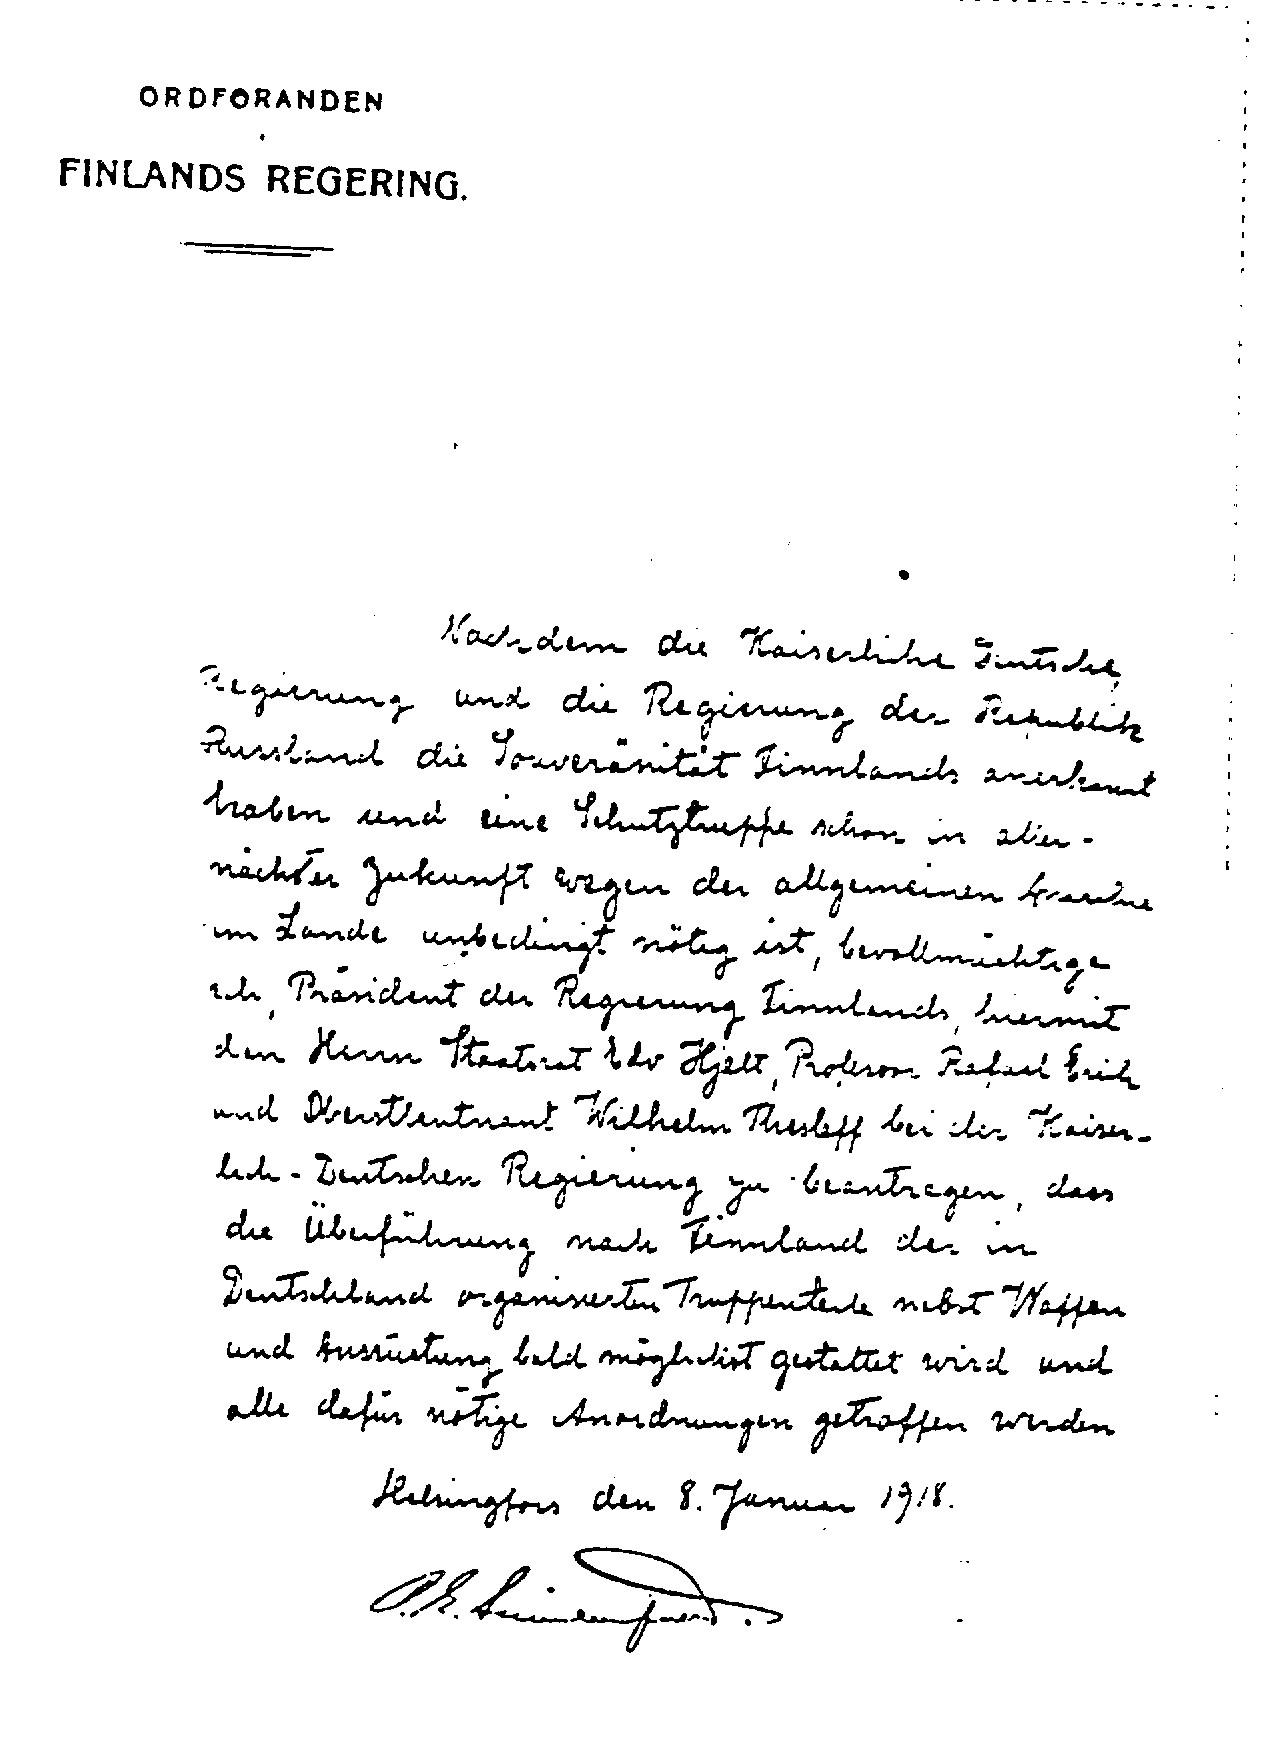 ORDFÖRANDEN
FINLANDS REGERING.
Nachdem die Kaiserliche Deutsche
Regierung und die Regierung der Republik
Russland die Souveränität Finnlands anerkannt
haben und eine Schutztruppe schon in aller-
nächster Zukunft wegen der allgemeinen
im Lande unbedingt nötig ist, bevollmächtige
ich, Präsident der Regierung Finnlands, hiermit
den Herrn Staatsrat Edv Hjelt, Professor Rafael Erich
und Oberstleutnant Wilhelm Thesleff bei der Kaiser-
lich-Deutschen Regierung zu beantragen, dass
die Überführung nach Finnland der in
Deutschland organisierten Truppenteile nebst Waffen
und Ausrüstung bald möglichst gestattet wird und
alle dafür nötige Anordnungen getroffen werden
Helsingfors den 8. Januar 1918.
P.E. Svinhufvud.